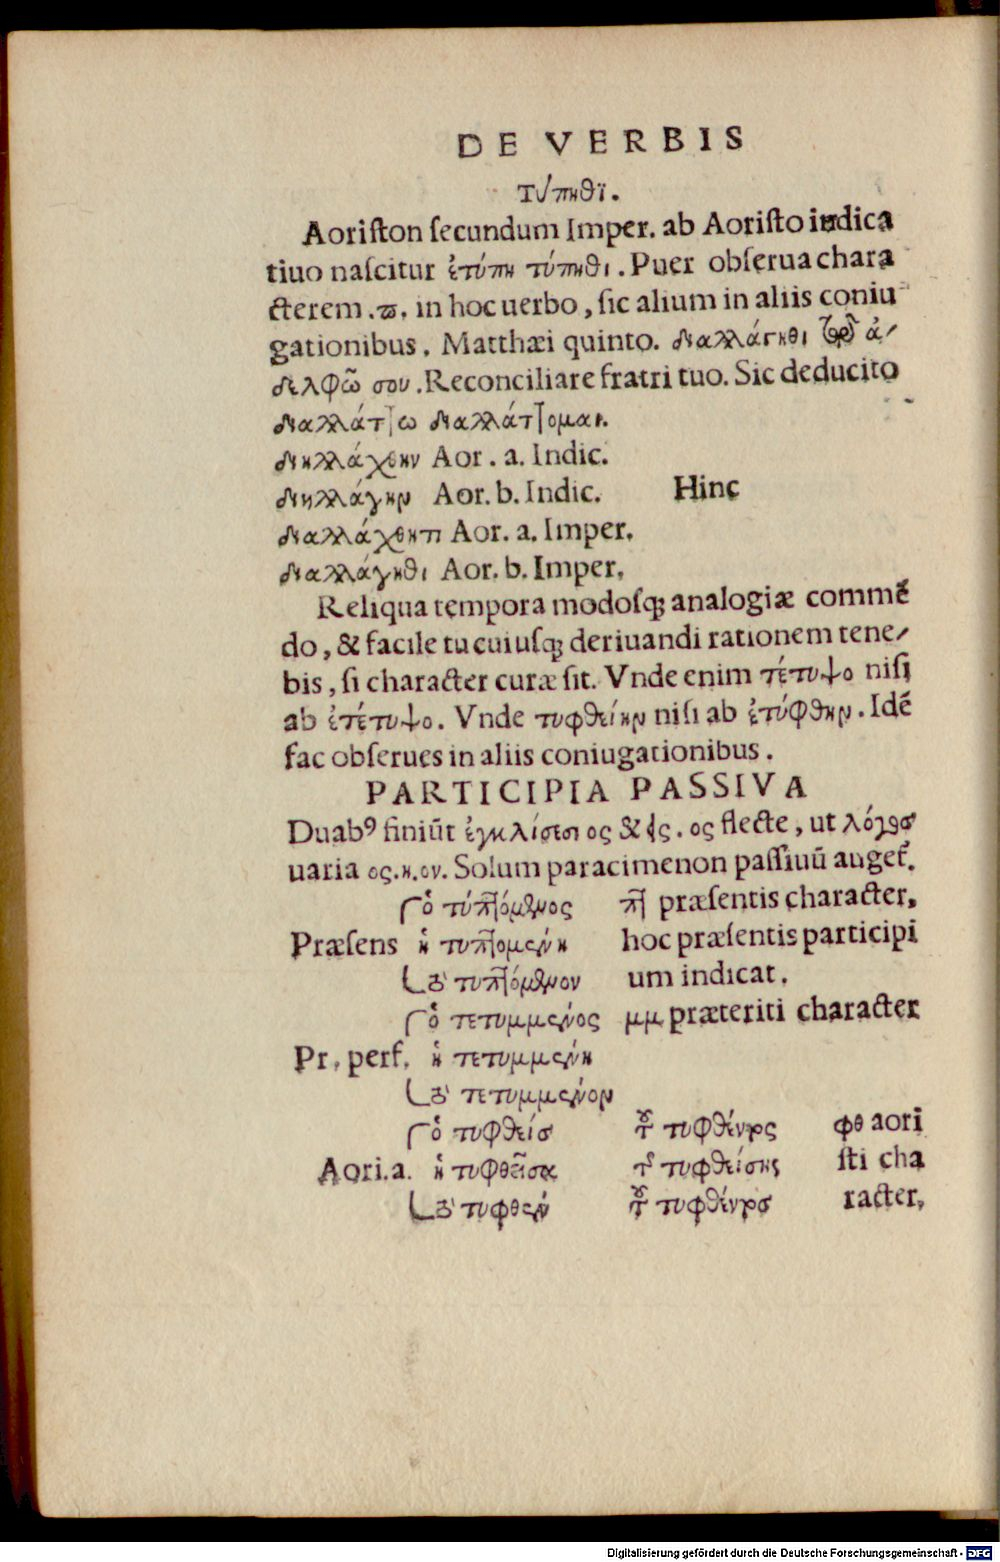 DE VERBIS
τύπηθι.
Aoriſton ſecundum Imper. ab Aoriſto indica
tiuo naſcitur ἐτύπη τύπηθι. Puer obſerua chara
cterem .ϖ. in hoc uerbo, ſic alium in aliis coniu
gationibus. Matthæi quinto. διαλλάγηθι τῷ ἀ/
δελφῶ σου. Reconciliare fratri tuo. Sic deducito
διαλλάττω διαλλάττομαι.
διηλλάχθην Aor. a. Indic.
διηλλάγην Aor. b. Indic. Hinc
διαλλάχθητι Aor. a. Imper.
διαλλάγηθι Aor. b. Imper.
Reliqua tempora modoſqꝫ analogiæ commē
do, & facile tu cuiuſqꝫ deriuandi rationem tene/
bis, ſi character curæ ſit. Vnde enim τέτυψο niſi
ab ἐτέτυψο. Vnde τυφθείην niſi ab ἐτύφθην. Idē
fac obſerues in aliis coniugationibus.
PARTICIPIA PASSIVA
Duabꝰ finiūt ἐγκλίσεσι ος & εὶς. ος flecte, ut λόγος
uaria ος.η.ον. Solum paracimenon paſſiuū auget̃.
ὁ τυπτόμενος πτ præſentis character,
Præſens ἡ τυπτομένη hoc præſentis participi
τὸ τυπτόμενον um indicat.
ὁ τετυμμένος μμ præteriti character
Pr. perf. ἡ τετυμμένη
τὸ τετυμμένον
ὁ τυφθείς τοῦ τυφθέντος φθ aori
Aori.a. ἡ τυφθεῖσα τῆς τυφθείσης ſti cha
τὸ τυφθέν τοῦ τυφθέντος racter,
Digitalisierung gefördert durch die Deutsche Forschungsgemeinschaft - DFG